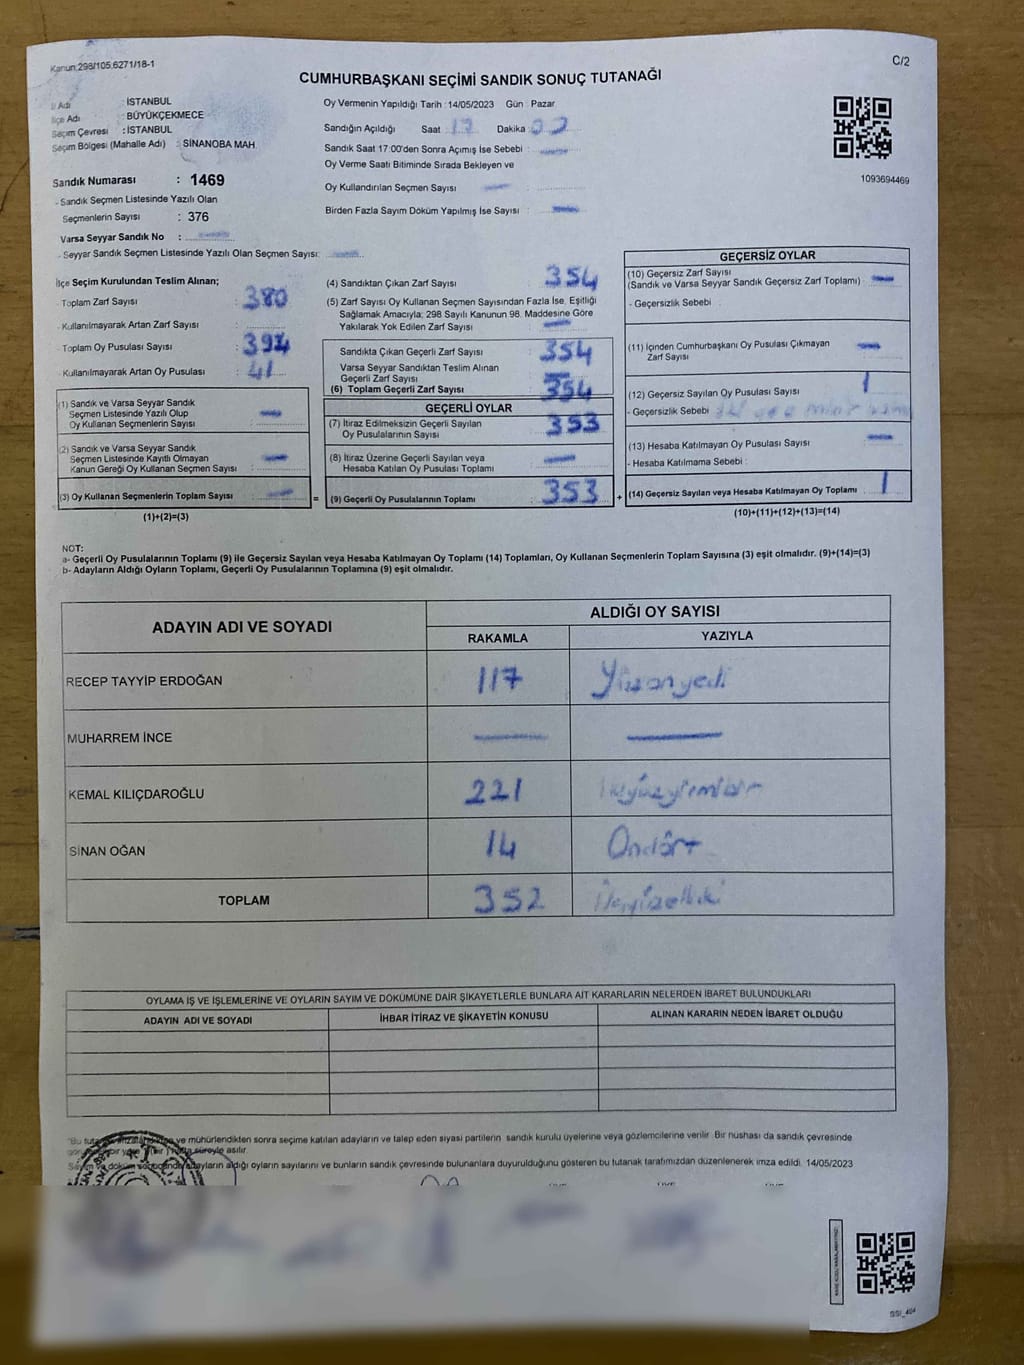 Kanun.298/105.6271/18-1
C/2
CUMHURBAŞKANI SEÇİMİ SANDIK SONUÇ TUTANAĞI
İl Adı : İSTANBUL
İlçe Adı : BÜYÜKÇEKMECE
Seçim Çevresi : İSTANBUL
Seçim Bölgesi (Mahalle Adı) : SİNANOBA MAH.
Sandık Numarası : 1469
- Sandık Seçmen Listesinde Yazılı Olan
Seçmenlerin Sayısı : 376
Varsa Seyyar Sandık No :
- Seyyar Sandık Seçmen Listesinde Yazılı Olan Seçmen Sayısı:
Oy Vermenin Yapıldığı Tarih : 14/05/2023 Gün : Pazar
Sandığın Açıldığı Saat 17 Dakika
Sandık Saat 17:00'den Sonra Açımış İse Sebebi :
Oy Verme Saati Bitiminde Sırada Bekleyen ve
Oy Kullandırılan Seçmen Sayısı :
Birden Fazla Sayım Döküm Yapılmış İse Sayısı :
1093694469
İlçe Seçim Kurulundan Teslim Alınan;
- Toplam Zarf Sayısı : 380
- Kullanılmayarak Artan Zarf Sayısı :
- Toplam Oy Pusulası Sayısı :
- Kullanılmayarak Artan Oy Pusulası : 41
(1) Sandık ve Varsa Seyyar Sandık
Seçmen Listesinde Yazılı Olup
Oy Kullanan Seçmenlerin Sayısı :
(2) Sandık ve Varsa Seyyar Sandık
Seçmen Listesinde Kayıtlı Olmayan
Kanun Gereği Oy Kullanan Seçmen Sayısı :
(3) Oy Kullanan Seçmenlerin Toplam Sayısı :
(1)+(2)=(3)
(4) Sandıktan Çıkan Zarf Sayısı : 354
(5) Zarf Sayısı Oy Kullanan Seçmen Sayısından Fazla İse, Eşitliği
Sağlamak Amacıyla; 298 Sayılı Kanunun 98. Maddesine Göre
Yakılarak Yok Edilen Zarf Sayısı :
Sandıkta Çıkan Geçerli Zarf Sayısı : 354
Varsa Seyyar Sandıktan Teslim Alınan
Geçerli Zarf Sayısı :
(6) Toplam Geçerli Zarf Sayısı : 354
GEÇERLİ OYLAR
(7) İtiraz Edilmeksizin Geçerli Sayılan
Oy Pusulalarının Sayısı : 353
(8) İtiraz Üzerine Geçerli Sayılan veya
Hesaba Katılan Oy Pusulası Toplamı :
= (9) Geçerli Oy Pusulalarının Toplamı : 353 +
GEÇERSİZ OYLAR
(10) Geçersiz Zarf Sayısı
(Sandık ve Varsa Seyyar Sandık Geçersiz Zarf Toplamı) :
- Geçersizlik Sebebi :
(11) İçinden Cumhurbaşkanı Oy Pusulası Çıkmayan
Zarf Sayısı :
(12) Geçersiz Sayılan Oy Pusulası Sayısı : 1
- Geçersizlik Sebebi :
(13) Hesaba Katılmayan Oy Pusulası Sayısı :
- Hesaba Katılmama Sebebi :
(14) Geçersiz Sayılan veya Hesaba Katılmayan Oy Toplamı : 1
(10)+(11)+(12)+(13)=(14)
NOT:
a- Geçerli Oy Pusulalarının Toplamı (9) ile Geçersiz Sayılan veya Hesaba Katılmayan Oy Toplamı (14) Toplamları, Oy Kullanan Seçmenlerin Toplam Sayısına (3) eşit olmalıdır. (9)+(14)=(3)
b- Adayların Aldığı Oyların Toplamı, Geçerli Oy Pusulalarının Toplamına (9) eşit olmalıdır.
ADAYIN ADI VE SOYADI
ALDIĞI OY SAYISI
RAKAMLA YAZIYLA
RECEP TAYYİP ERDOĞAN 117 Yüzonyedi
MUHARREM İNCE
KEMAL KILIÇDAROĞLU 221 İkiyüzyirmibir
SİNAN OĞAN 14 Ondört
TOPLAM 352 Üçyüzelliiki
OYLAMA İŞ VE İŞLEMLERİNE VE OYLARIN SAYIM VE DÖKÜMÜNE DAİR ŞİKAYETLERLE BUNLARA AİT KARARLARIN NELERDEN İBARET BULUNDUKLARI
ADAYIN ADI VE SOYADI İHBAR İTİRAZ VE ŞİKAYETİN KONUSU ALINAN KARARIN NEDEN İBARET OLDUĞU
ve mühürlendikten sonra seçime katılan adayların ve talep eden siyasi partilerin sandık kurulu üyelerine veya gözlemcilerine verilir. Bir nüshası da sandık çevresinde
süreyle asılır.
adayların aldığı oyların sayılarını ve bunların sandık çevresinde bulunanlara duyurulduğunu gösteren bu tutanak tarafımızdan düzenlenerek imza edildi. 14/05/2023